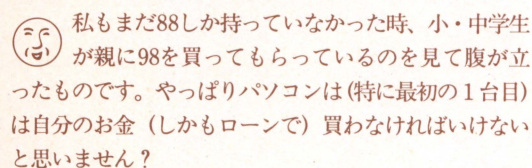 私もまだ88しか持っていなかった時、小・中学生
が親に98を買ってもらっているのを見て腹が立
ったものです。やっぱりパソコンは(特に最初の1台目)
は自分のお金（しかもローンで）買わなければいけない
と思いません？